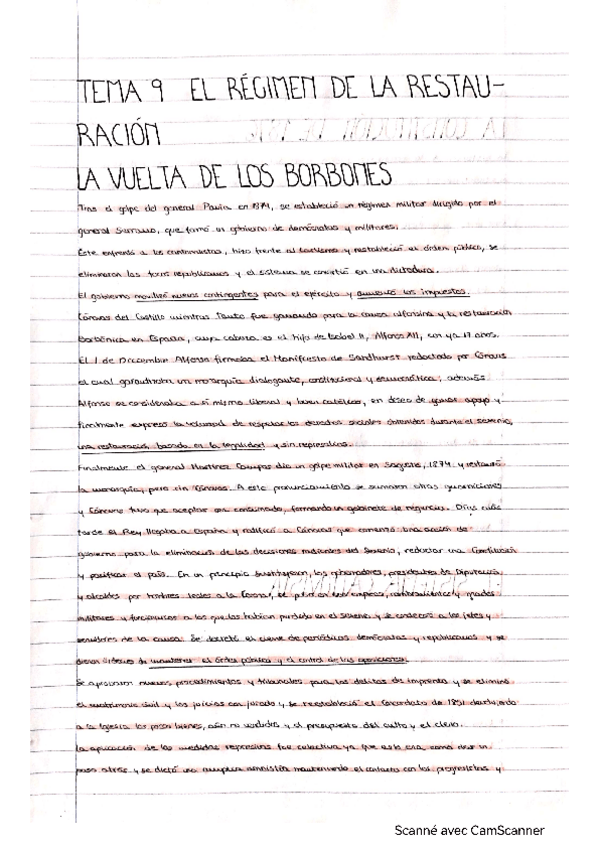 TEMA 9 EL RÉGIMEN DE LA RESTAU-
RACIÓN
LA VUELTA DE LOS BORBONES
Tras el golpe del general Pavía en 1874, se estableció un régimen militar dirigido por el
general Serrano, que formó un gobierno de demócratas y militares.
Este enfrentó a los cantonalistas, hizo frente al carlismo y restableció el orden público, se
eliminaron las republicanos y el sistema se convirtió en una dictadura.
El gobierno movilizó nuevos contingentes para el ejército y aumentó los impuestos.
Cánovas del Castillo mientras tanto fue ganando para la causa alfonsina y la restauración
borbónica en España, cuya cabeza es el hijo de Isabel II, Alfonso XII, con ya 17 años.
El 1 de Diciembre Alfonso firmaba el Manifiesto de Sandhurst redactado por Cánovas
el cual garantizaba un monarquía dialogante, constitucional y democrática, además
Alfonso se consideraba a sí mismo liberal y buen católico, en deseo de ganar apoyo y
finalmente expresó la voluntad de respetar los derechos sociales obtenidos durante el sexenio,
una restauración basada en la legalidad y sin represalias.
Finalmente el general Martínez Campos dio un golpe militar en Sagunto, 1874 y restauró
la monarquía, pero sin Cánovas. A este pronunciamiento se sumaron otras guarniciones
y Cánovas tuvo que aceptar consumado, formando un gabinete de regencia. Días más
tarde el Rey llegaba a España y ratificó a Cánovas que comenzó una acción de
gobierno para la eliminación de las decisiones radicales del Sexenio, redactar una Constitución
y pacificar el país. En un principio sustituyeron, los gobernadores, presidentes de Diputación
y alcaldes por hombres leales a la Corona, se en sus empleos, y grados
militares y funcionarios a los que los habían perdido en el sexenio y se a los jefes y
servidores de la causa. Se decretó el cierre de periódicos demócratas y republicanos y se
dieron órdenes de mantener el orden público y el control de las oposiciones.
Se aprobaron nuevos procedimientos y tribunales para los delitos de imprenta y se eliminó
el matrimonio civil y los juicios con jurado y se restableció el Concordato de 1851 devolviendo
a la Iglesia los bienes, aún no vendidos y el presupuesto del culto y el clero.
La aplicación de las medidas represivas fue selectiva ya que esto era como dar un
paso atrás y se dictó una amplia amnistía manteniendo el contacto con los progresistas y
Scanné avec CamScanner